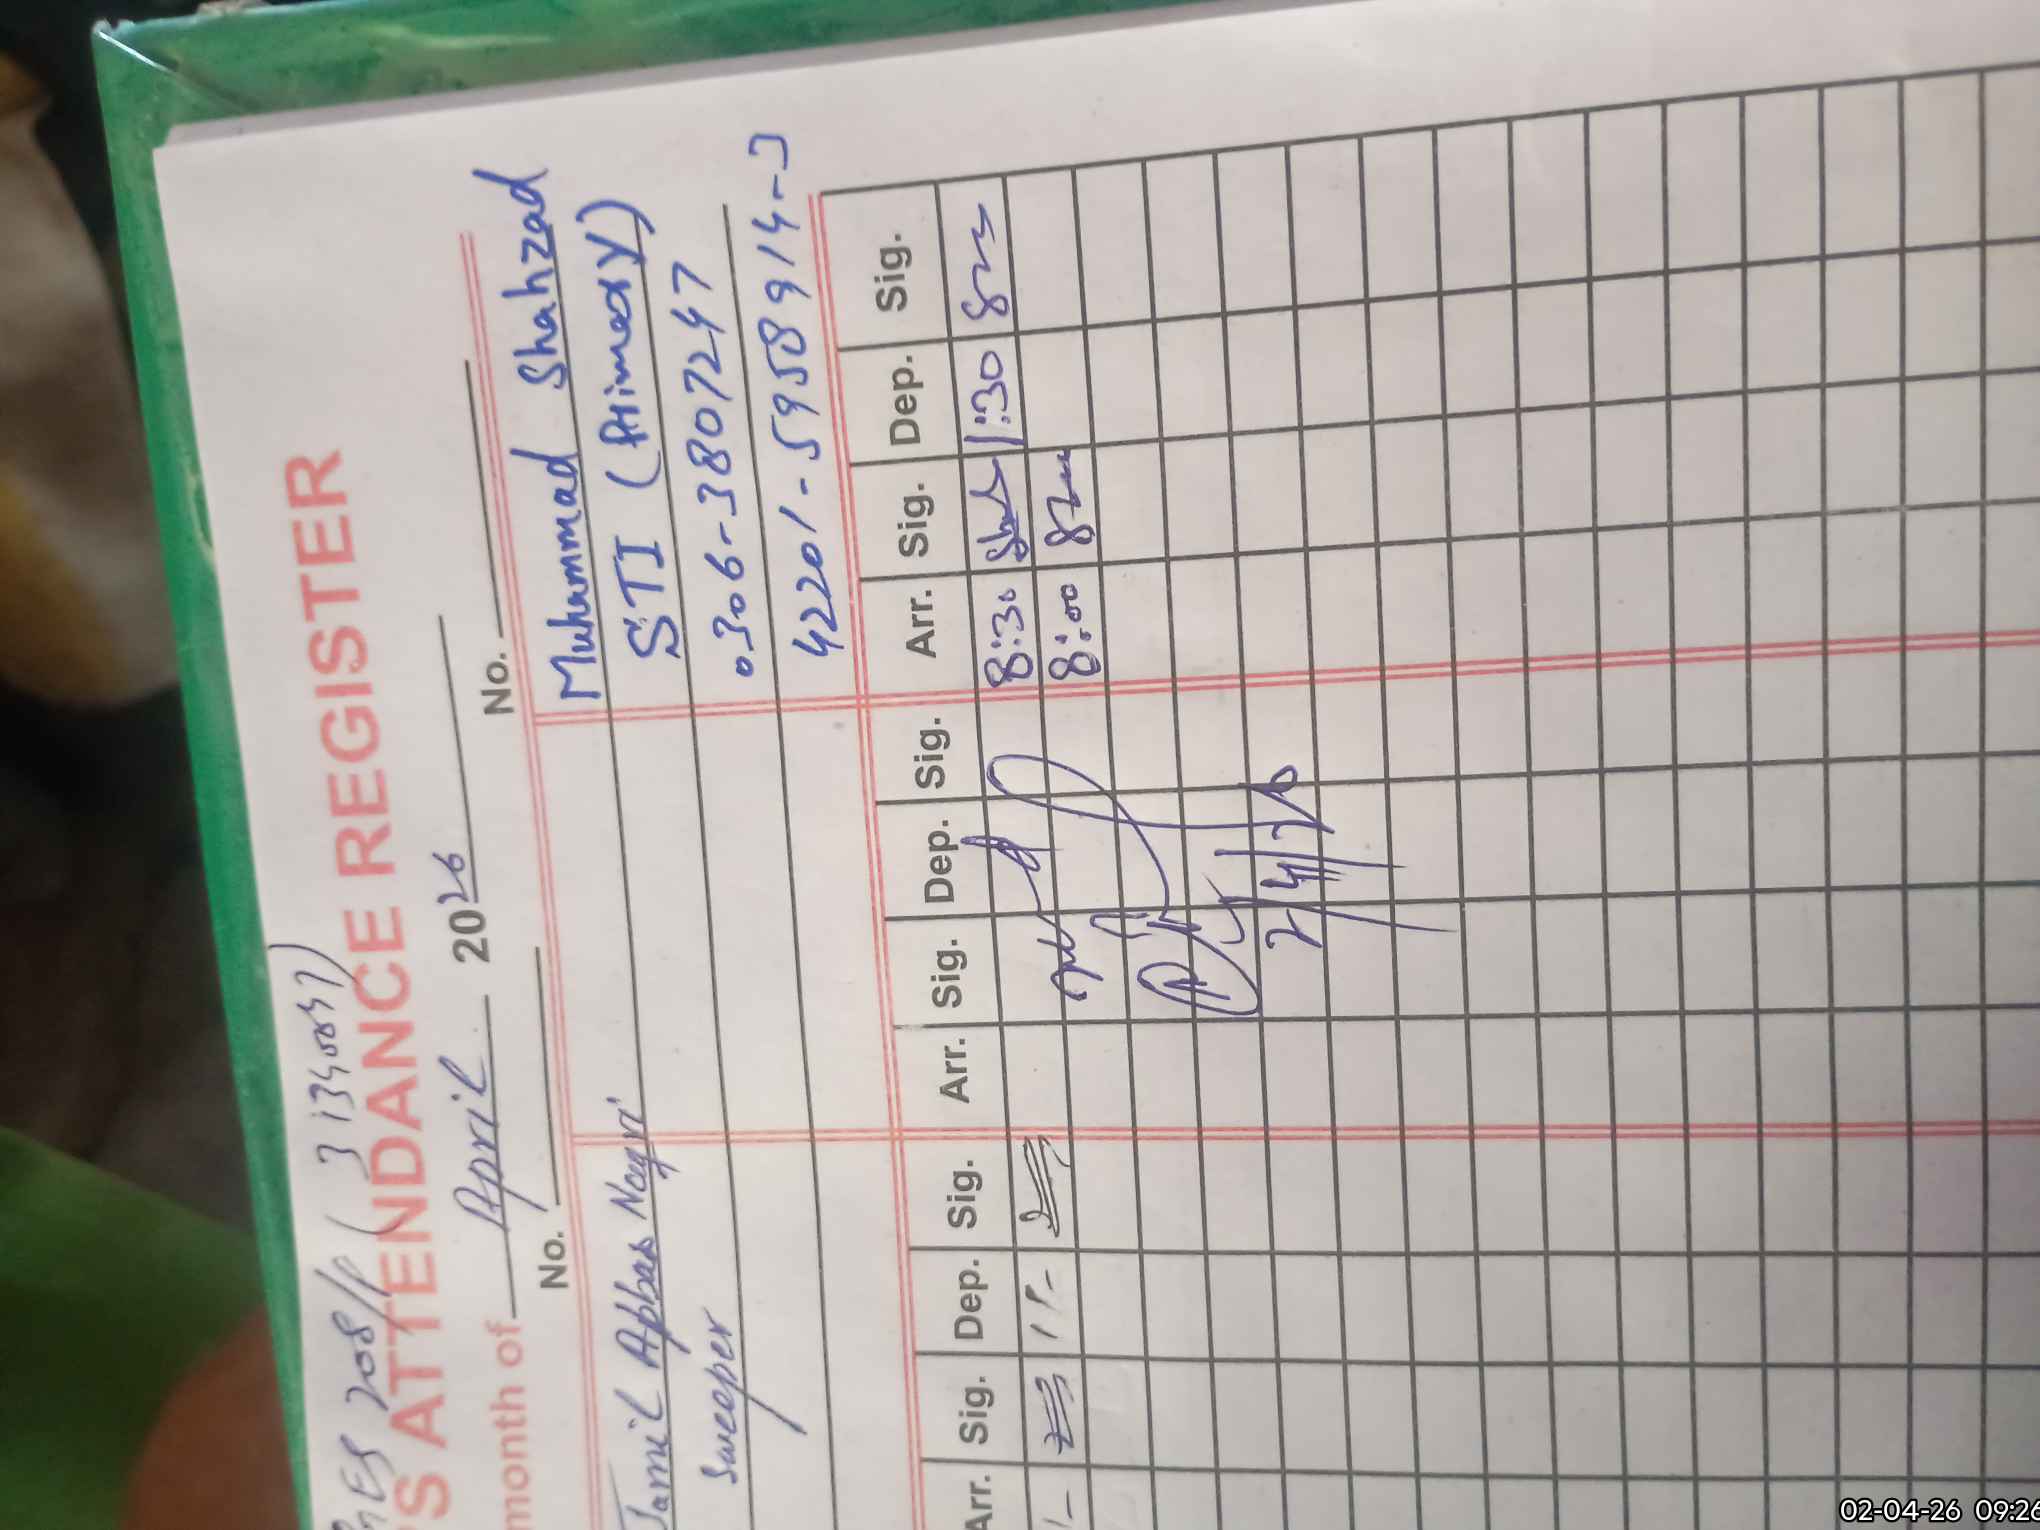 GES 208/P (313400397)
S ATTENDANCE REGISTER
month of April 2026
No.
No.
Jamil Abbas Naqvi
Sweeper
Muhammad Shahzad
STI (Primary)
0306-3807247
42201-5958914-3
Arr. Sig. Dep. Sig. Arr. Sig. Dep. Sig. Arr. Sig. Dep. Sig.
8:30 1:30
8:00
2/4/26
02-04-26 09:26